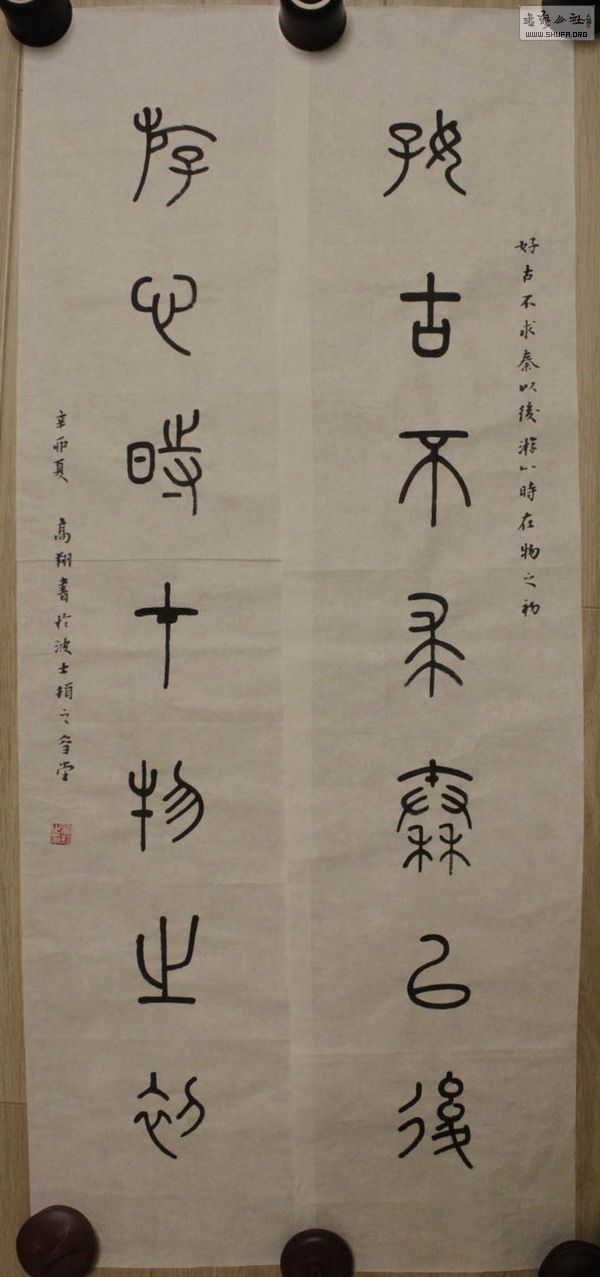 好古不求秦以後游心時在物之初
好古不求秦以後
游心時在物之初
辛卯夏 高翔書於波士頓之堂
書法公社
WWW.SHUFA.ORG